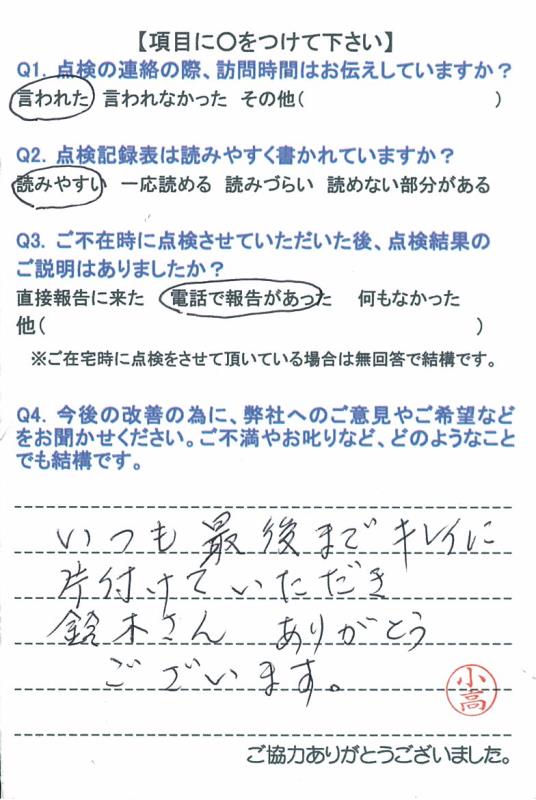 【項目に○をつけて下さい】
Q1. 点検の連絡の際、訪問時間はお伝えしていますか？
言われた 言われなかった その他( )
Q2. 点検記録表は読みやすく書かれていますか？
読みやすい 一応読める 読みづらい 読めない部分がある
Q3. ご不在時に点検させていただいた後、点検結果の
ご説明はありましたか？
直接報告に来た 電話で報告があった 何もなかった
他( )
※ご在宅時に点検をさせて頂いている場合は無回答で結構です。
Q4. 今後の改善の為に、弊社へのご意見やご希望など
をお聞かせください。ご不満やお叱りなど、どのようなこと
でも結構です。
いつも最後までキレイに
片付けていただき
鈴木さん ありがとう
ございます。
小高
ご協力ありがとうございました。